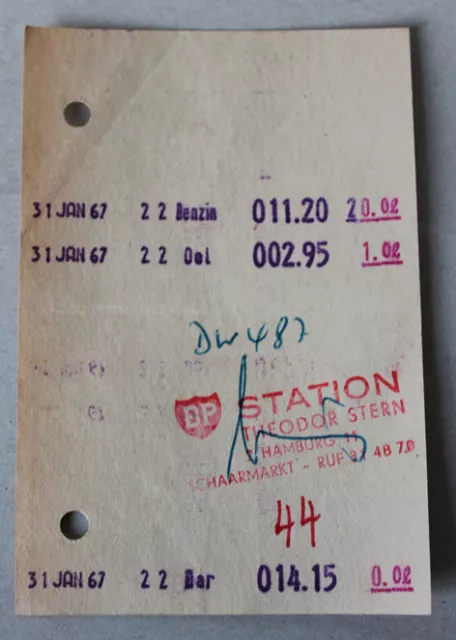 31 JAN 67 2 2 Benzin 011.20 20.0ℓ
31 JAN 67 2 2 Oel 002.95 1.0ℓ
DW 487
BP STATION
THEODOR STERN
HAMBURG 11
SCHAARMARKT - RUF 48 78
44
31 JAN 67 2 2 Bar 014.15 0.0ℓ